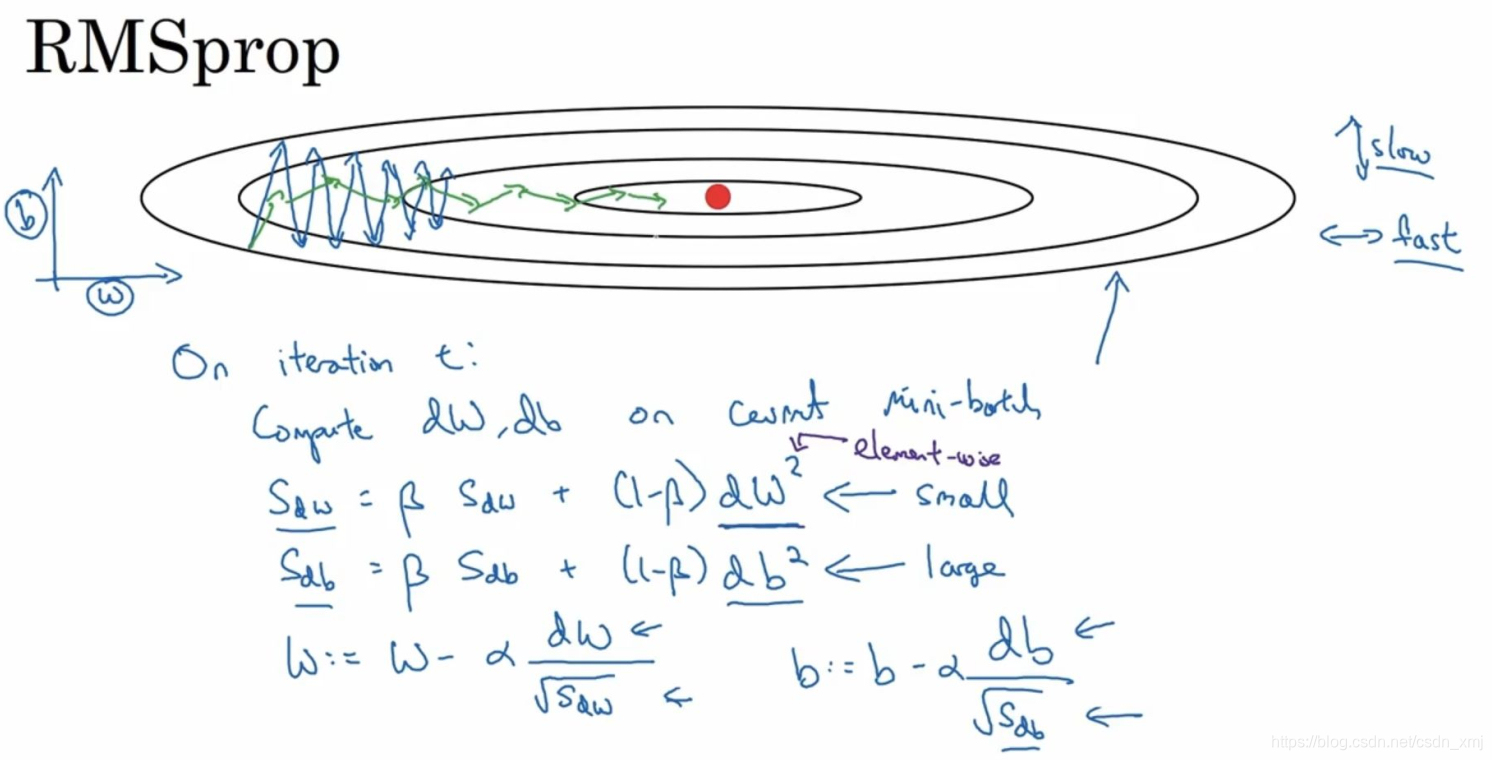 RMSprop
slow
b
fast
w
On iteration t:
Compute dW, db on current mini-batch
element-wise
Sdw = β Sdw + (1-β) dW² ← small
Sdb = β Sdb + (1-β) db² ← large
W := W - α dW/√Sdw ← b := b - α db/√Sdb ←
https://blog.csdn.net/csdn_xmj